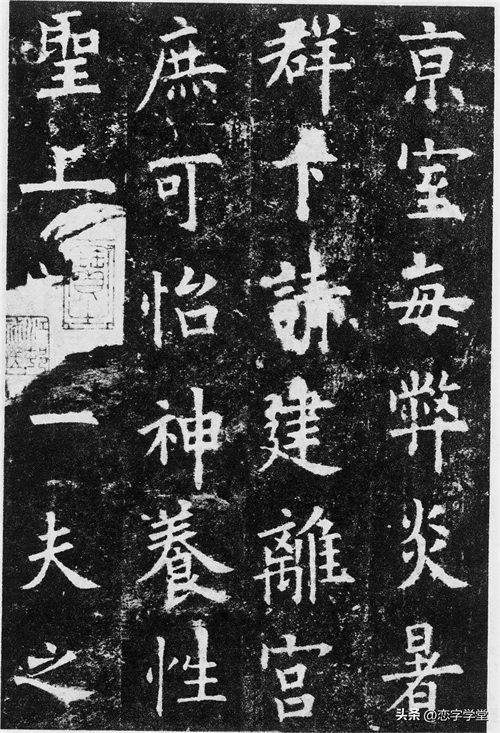 京室每弊炎暑
群下請建離宮
庶可怡神養性
聖上一夫之
头条 @恋字学堂